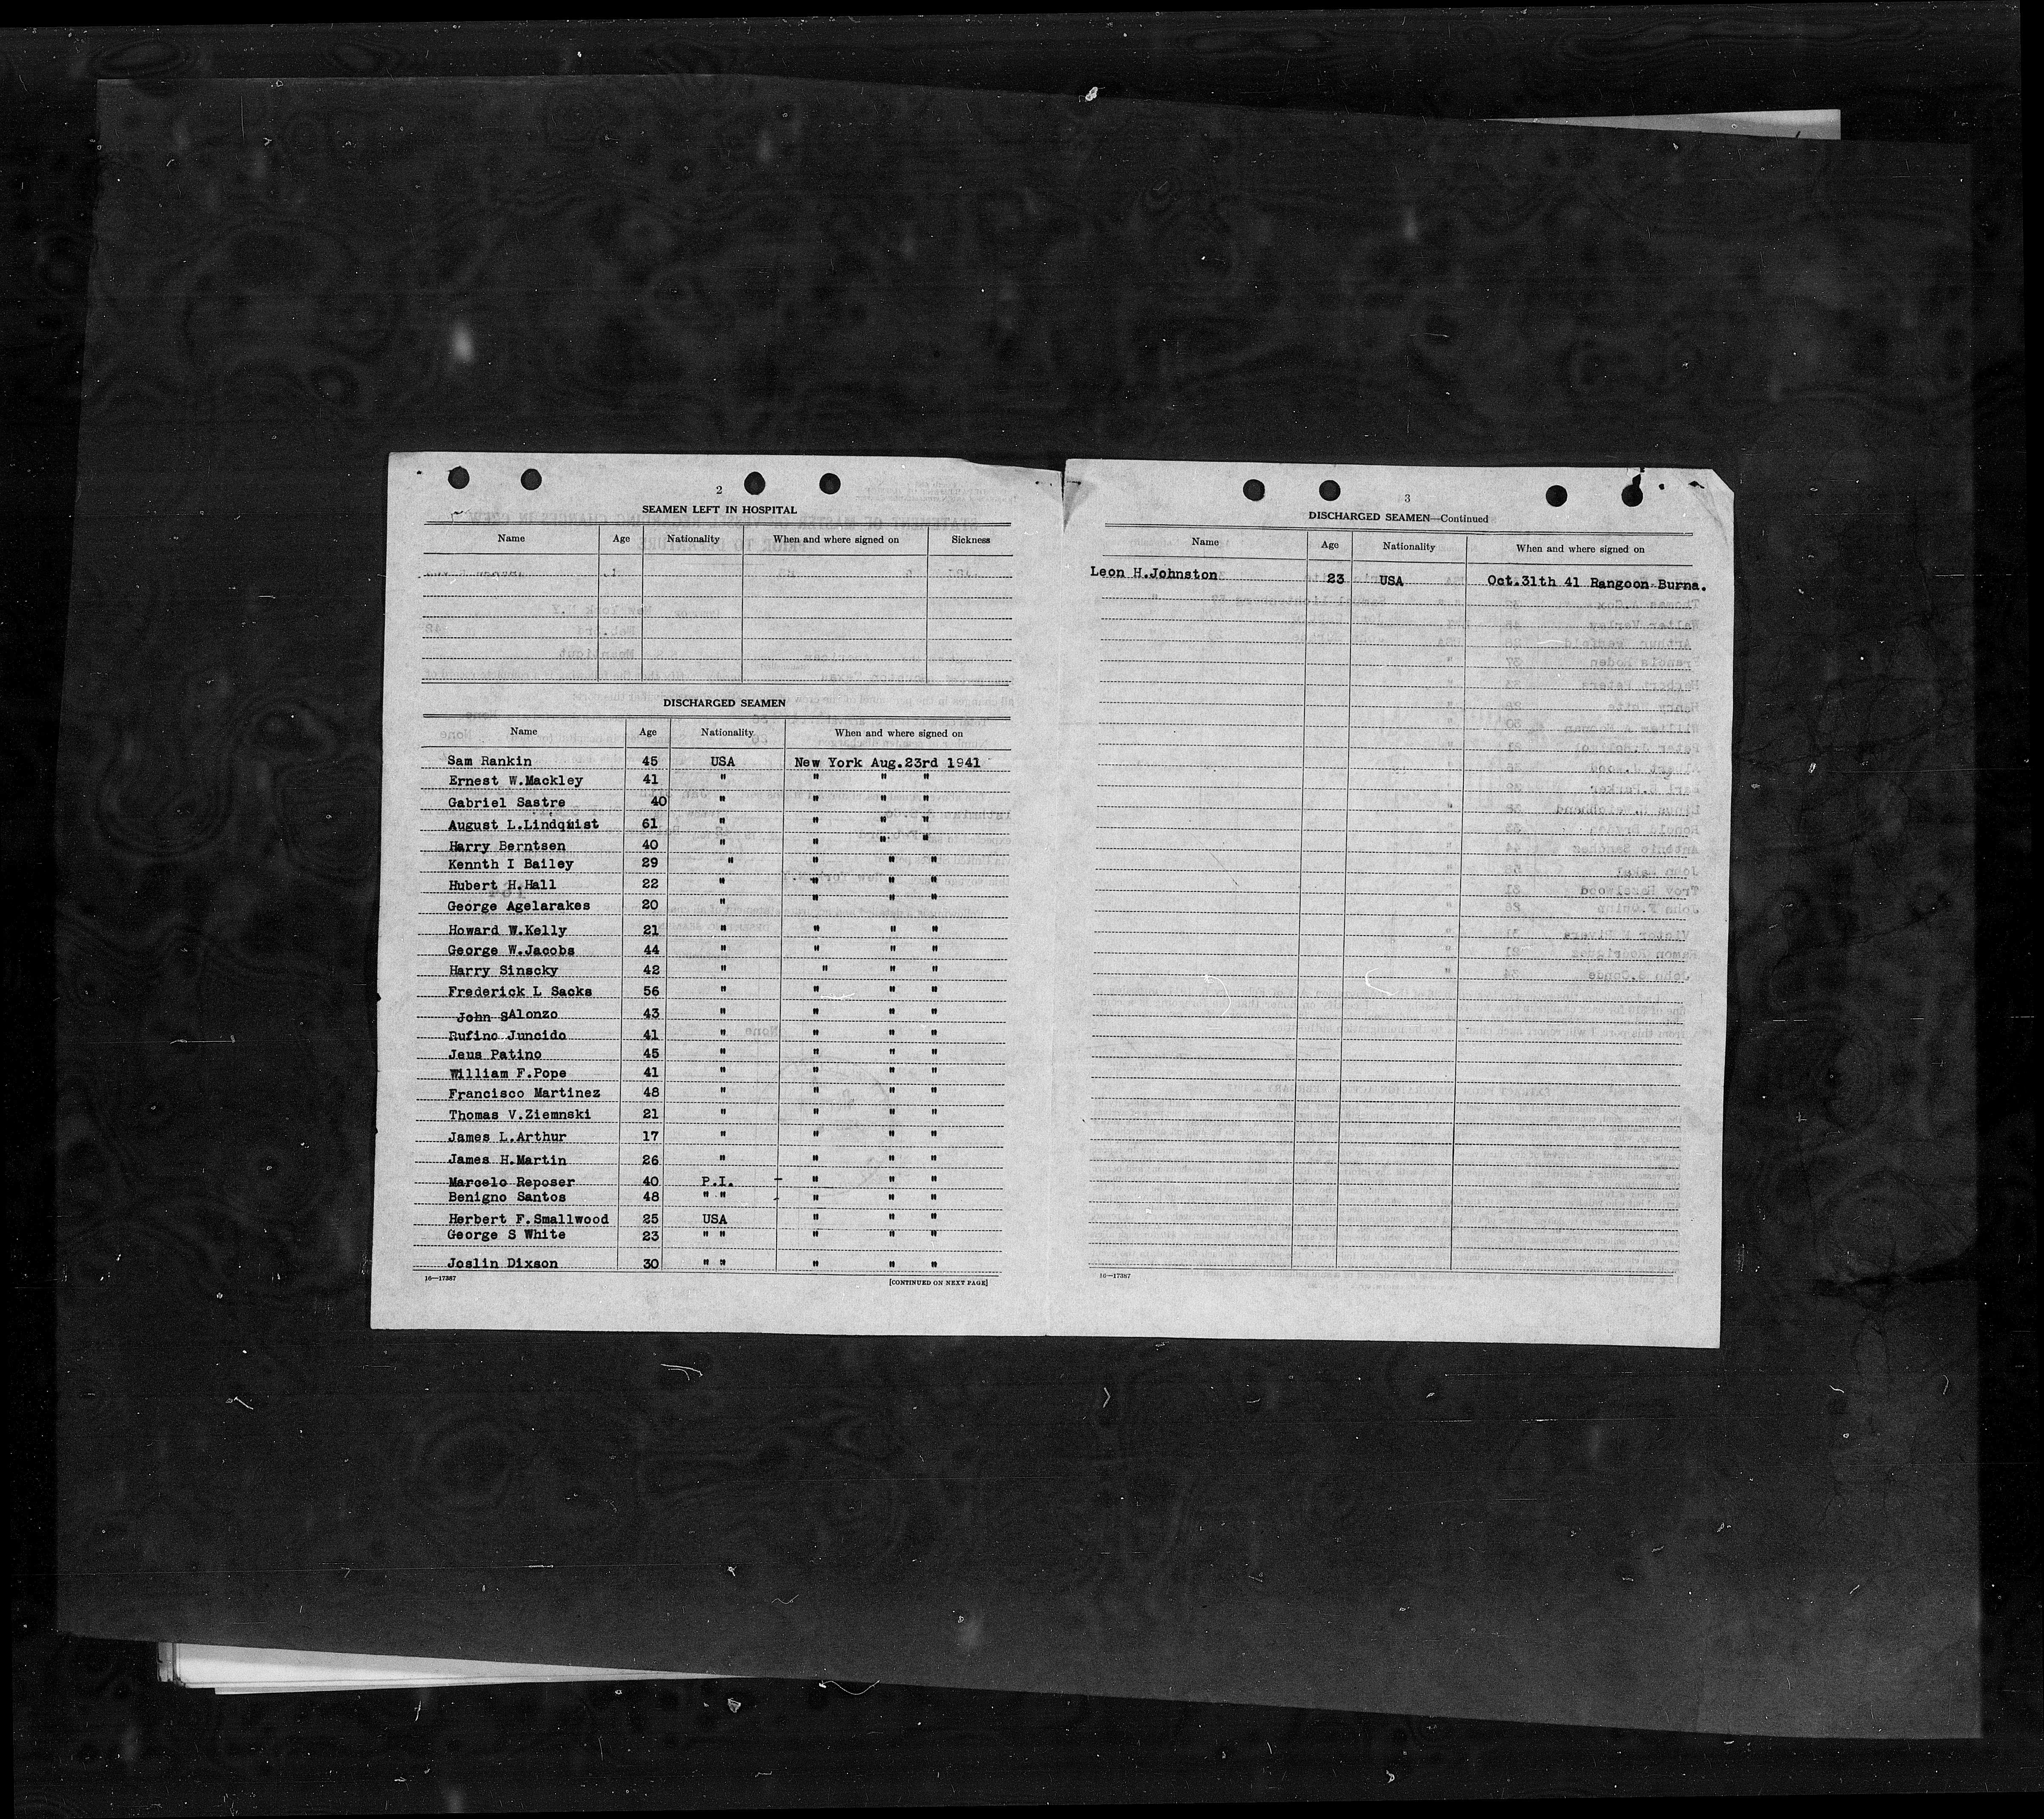 2
SEAMEN LEFT IN HOSPITAL
Name Age Nationality When and where signed on Sickness
DISCHARGED SEAMEN
Name Age Nationality When and where signed on
Sam Rankin 45 USA New York Aug.23rd 1941
Ernest W.Mackley 41 " " " "
Gabriel Sastre 40 " " " "
August L.Lindquist 61 " " " "
Harry Berntsen 40 " " " "
Kennth I Bailey 29 " " " "
Hubert H.Hall 22 " " " "
George Agelarakes 20 " " " "
Howard W.Kelly 21 " " " "
George W.Jacobs 44 " " " "
Harry Sinscky 42 " " " "
Frederick L Sacks 56 " " " "
John SAlonzo 43 " " " "
Rufino Juncido 41 " " " "
Jeus Patino 45 " " " "
William F.Pope 41 " " " "
Francisco Martinez 48 " " " "
Thomas V.Ziemnski 21 " " " "
James L.Arthur 17 " " " "
James H.Martin 26 " " " "
Marcelo Reposer 40 P.I. - " " "
Benigno Santos 48 " " - " " "
Herbert F.Smallwood 25 USA " " "
George S White 23 " " " " "
Joslin Dixson 30 " " " " "
16—17387 [CONTINUED ON NEXT PAGE]
3
DISCHARGED SEAMEN—Continued
Name Age Nationality When and where signed on
Leon H.Johnston 23 USA Oct.31th 41 Rangoon Burna.
16—17387